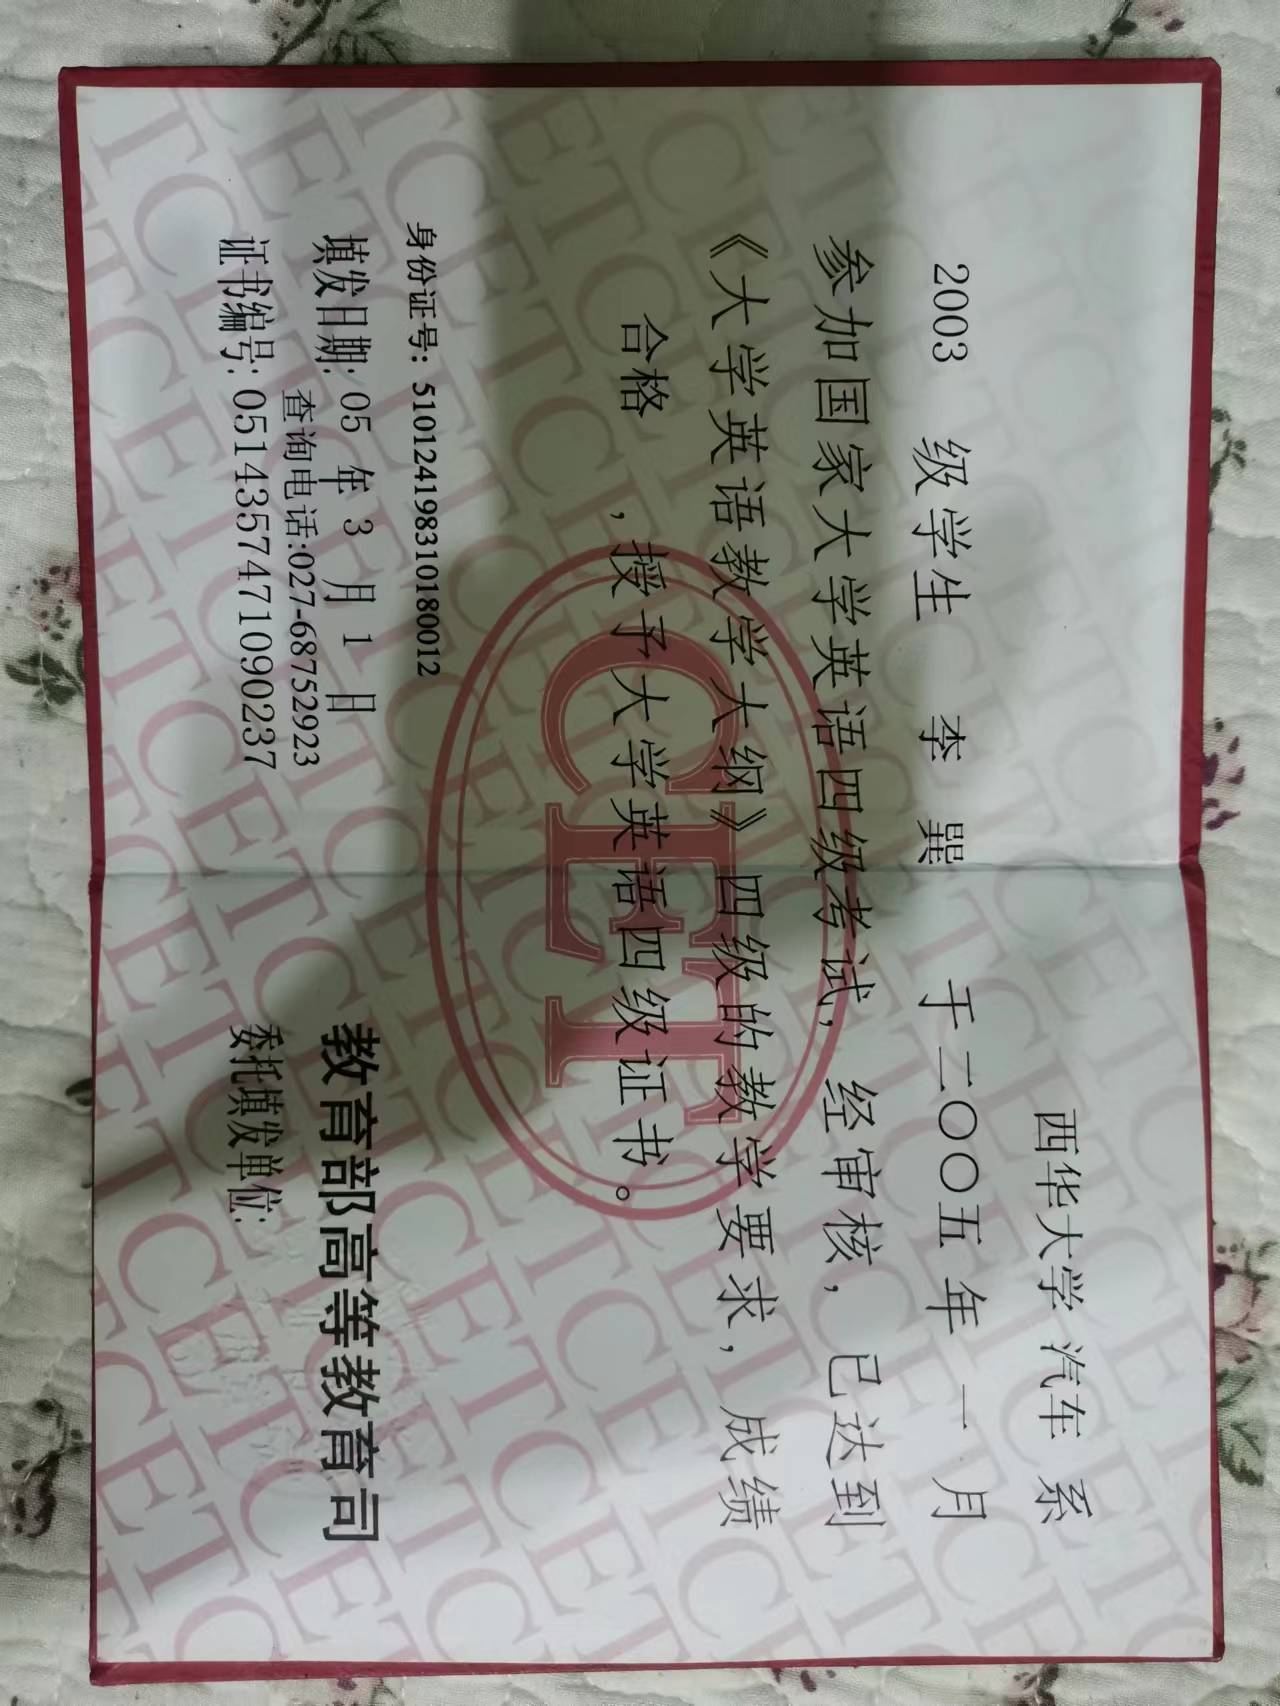 西华大学 汽车 系
2003 级学生 李 巽 于二〇〇五年 一 月
参加国家大学英语四级考试, 经审核, 已达到
《大学英语教学大纲》四级的教学要求, 成绩
合格 , 授予大学英语四级证书。
CET
身份证号: 510124198310180012
填发日期: 05 年 3 月 1 日
教育部高等教育司
查询电话:027-68752923
委托填发单位:
证书编号: 051435747109023​7